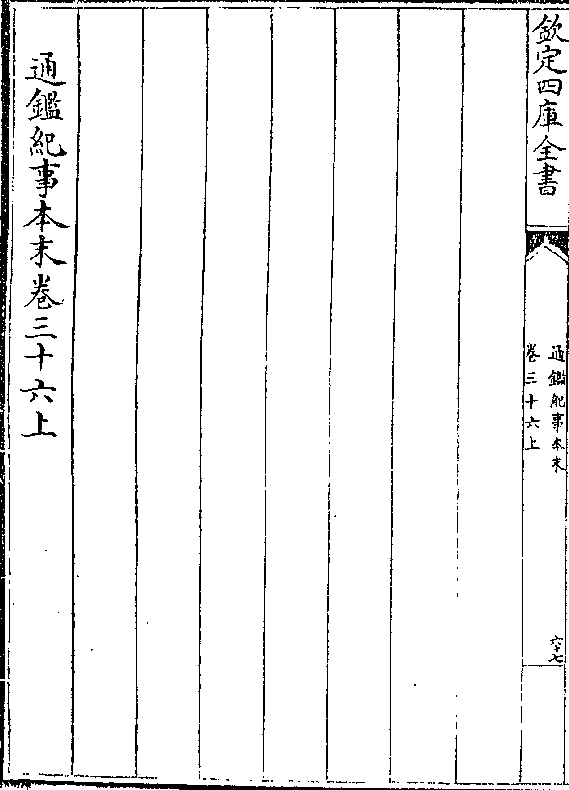 欽定四庫全書
通鑑紀事本末
卷三十六上
六十七
通鑑紀事本末卷三十六上